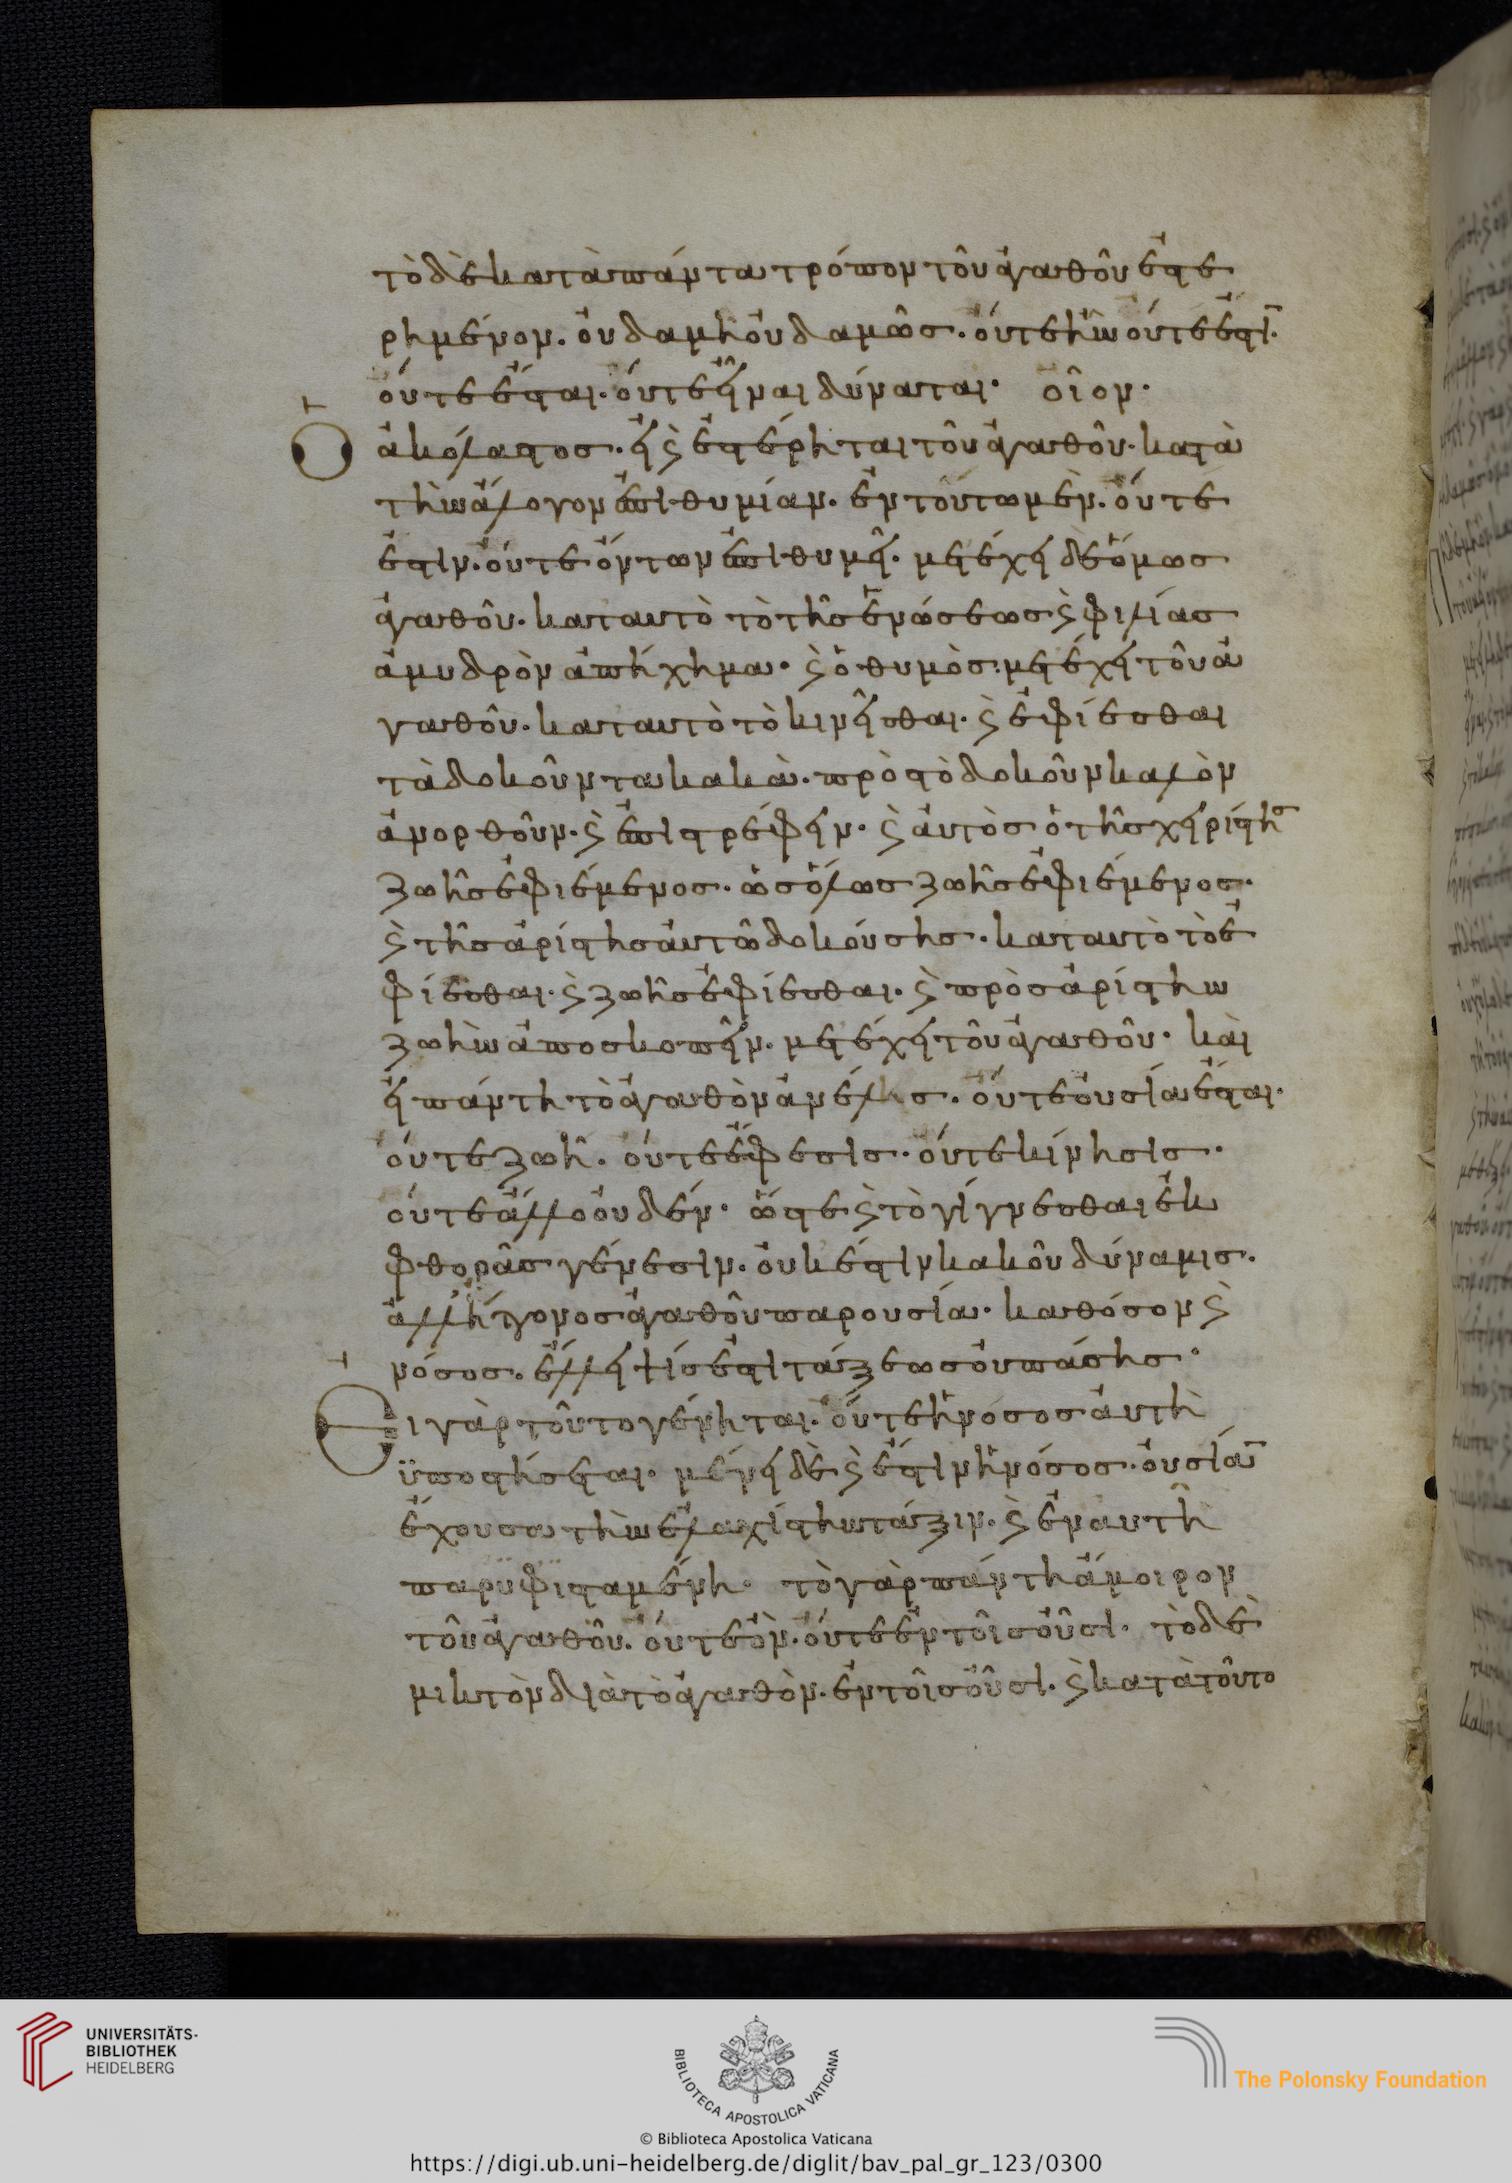 τὸ δὲ κατὰ πάντα τρόπον τοῦ ἀγαθοῦ ἐστε
ρημένον. οὐδαμῆ οὐδαμῶσ. οὔτε ἦν οὔτε ἐστϊ.
οὔτε ἔσται. οὔτε εἶναι δύναται. οἷον.
Ὁ ἀκόλαστος. εἰ ϗ ἐστέρηται τοῦ ἀγαθοῦ. κατὰ
τὴν ἄλογον ἐπιθυμίαν. ἐν τούτω μὲν. οὔτε
ἐστιν. οὔτε ὄντων ἐπιθυμεῖ. μετέχει δὲ ὅμωσ
ἀγαθοῦ. κατ αυτὸ τὸ τῆσ ἑνώσεωσ ϗ φιλίασ
ἀμυδρὸν ἀπήχημα. ϗ ὁ θυμὸσ. μετέχει τοῦ ἀ
γαθοῦ. κατ αυτὸ τὸ κινεῖσθαι. ϗ ἐφίεσθαι
τὰ δοκοῦντα κακὰ. πρὸσ τὸ δοκοῦν καλὸν
ἀνορθοῦν. ϗ ἐπιστρέφειν. ϗ ἀυτὸσ ὁ τῆσ χειρίστησ
ζωῆσ ἐφιέμενοσ. ὡσ ὅλωσ ζωῆσ ἐφιέμενοσ.
ϗ τῆσ ἀρίστησ ἀυτῶ δοκούσησ. κατ αυτὸ τὸ ἐ
φίεσθαι. ϗ ζωῆσ ἐφίεσθαι. ϗ πρὸσ ἀρίστην
ζωὴν ἀποσκοπεῖν. μετέχει τοῦ ἀγαθοῦ. καὶ
εἰ πάντη τὸ ἀγαθὸν ἀνέλησ. οὔτε οὐσία ἔσται.
οὔτε ζωὴ. οὔτε ἔφεσισ. οὔτε κίνησισ.
οὔτε ἄλλο οὐδέν. ὥστε ϗ τὸ γίγνεσθαι ἐκ
φθορᾶσ γένεσιν. οὐκ έστιν κακοῦ δύναμισ.
ἀλλ ήττονοσ ἀγαθοῦ παρουσία. καθόσον ϗ
νόσοσ. ἔλλειψίσ ἐστι τάξεωσ οὐ πάσησ.
Εἰ γὰρ τοῦτο γένηται. οὔτε ἡ νόσοσ ἀυτὴ
ϋποστήσεται. μένει δὲ ϗ ἔστιν ἡ νόσοσ. οὐσίαν
ἔχουσα τὴν ἐλαχίστην τάξιν. ϗ ἐν αυτῆ
παρϋφισταμένη. τὸ γὰρ πάντη ἄμοιρον
τοῦ ἀγαθοῦ. οὔτε ὂν. οὔτε ἐν τοῖσ οὖσι. τὸ δὲ
μικτὸν διὰ τὸ ἀγαθὸν. ἐν τοῖσ οὖσι. ϗ κατὰ τοῦτο
UNIVERSITÄTS-
BIBLIOTHEK
HEIDELBERG
BIBLIOTECA APOSTOLICA VATICANA
The Polonsky Foundation
© Biblioteca Apostolica Vaticana
https://digi.ub.uni-heidelberg.de/diglit/bav_pal_gr_123/0300